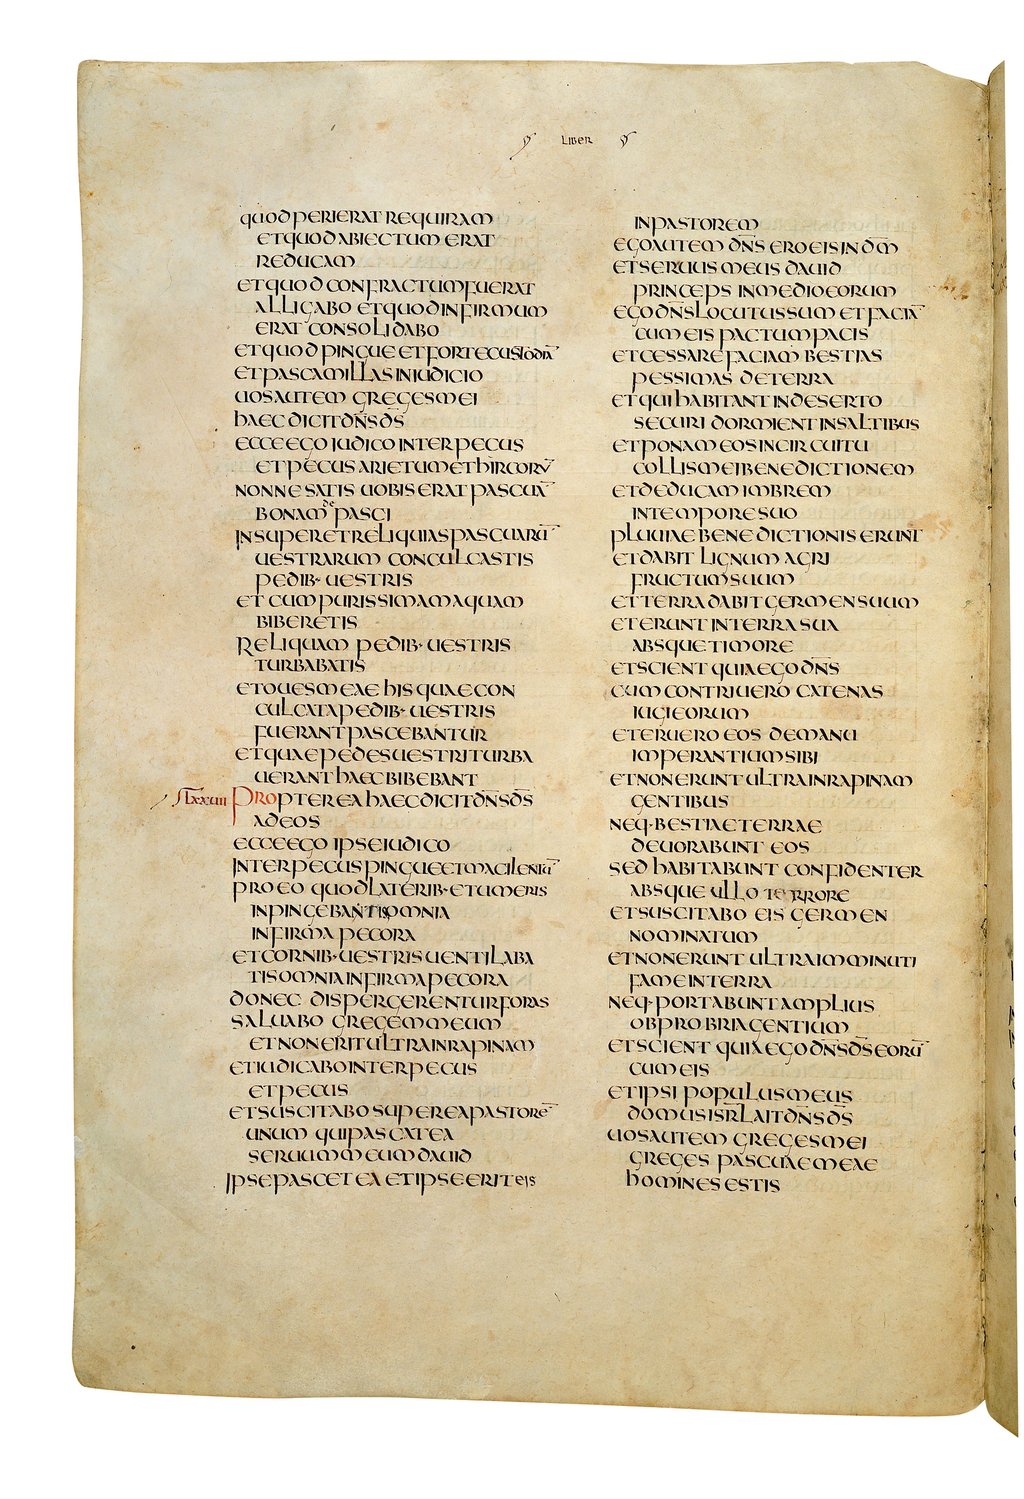 LIBER
QUOD PERIERAT REQUIRAM
ET QUOD ABIECTUM ERAT
REDUCAM
ET QUOD CONFRACTUM FUERAT
ALLIGABO ET QUOD INFIRMUM
ERAT CONSOLIDABO
ET QUOD PINGUE ET FORTE CUSTODIĀ
ET PASCAM ILLAS IN IUDICIO
UOS AUTEM GREGES MEI
HAEC DICIT DN̄S DS̄
ECCE EGO IUDICO INTER PECUS
ET PECUS ARIETUM ET HIRCORŪ
NONNE SATIS UOBIS ERAT PASCUĀ
BONAM DE PASCI
INSUPER ET RELIQUIAS PASCUARŪ
UESTRARUM CONCULCASTIS
PEDIB· UESTRIS
ET CUM PURISSIMAM AQUAM
BIBERETIS
RELIQUAM PEDIB· UESTRIS
TURBABATIS
ET OUES MEAE HIS QUAE CON
CULCATA PEDIB· UESTRIS
FUERANT PASCEBANTUR
ET QUAE PEDES UESTRI TURBA
UERANT HAEC BIBEBANT
LXXIIII PROPTEREA HAEC DICIT DN̄S DS̄
AD EOS
ECCE EGO IPSE IUDICO
INTER PECUS PINGUE ET MACILENTŪ
PRO EO QUOD LATERIB· ET UMERIS
INPINGEBANTIS OMNIA
INFIRMA PECORA
ET CORNIB· UESTRIS UENTILABA
TIS OMNIA INFIRMA PECORA
DONEC DISPERGERENTUR FORAS
SALUABO GREGEM MEUM
ET NON ERIT ULTRA IN RAPINAM
ET IUDICABO INTER PECUS
ET PECUS
ET SUSCITABO SUPER EA PASTORĒ
UNUM QUI PASCAT EA
SERUUM MEUM DAUID
IPSE PASCET EA ET IPSE ERIT EIS
IN PASTOREM
EGO AUTEM DN̄S ERO EIS IN DM̄
ET SERUUS MEUS DAUID
PRINCEPS IN MEDIO EORUM
EGO DN̄S LOCUTUS SUM ET FACIĀ
CUM EIS PACTUM PACIS
ET CESSARE FACIAM BESTIAS
PESSIMAS DE TERRA
ET QUI HABITANT IN DESERTO
SECURI DORMIENT IN SALTIBUS
ET PONAM EOS IN CIRCUITU
COLLIS MEI BENEDICTIONEM
ET DEDUCAM IMBREM
IN TEMPORE SUO
PLUUIAE BENEDICTIONIS ERUNT
ET DABIT LIGNUM AGRI
FRUCTUM SUUM
ET TERRA DABIT GERMEN SUUM
ET ERUNT IN TERRA SUA
ABSQUE TIMORE
ET SCIENT QUIA EGO DN̄S
CUM CONTRIUERO CATENAS
IUGI EORUM
ET ERUERO EOS DE MANU
IMPERANTIUM SIBI
ET NON ERUNT ULTRA IN RAPINAM
GENTIBUS
NEQ· BESTIAE TERRAE
DEUORABUNT EOS
SED HABITABUNT CONFIDENTER
ABSQUE ULLO TERRORE
ET SUSCITABO EIS GERMEN
NOMINATUM
ET NON ERUNT ULTRA IMMINUTI
FAME IN TERRA
NEQ· PORTABUNT AMPLIUS
OBPROBRIA GENTIUM
ET SCIENT QUIA EGO DN̄S DS̄ EORŪ
CUM EIS
ET IPSI POPULUS MEUS
DOMUS ISRL̄ AIT DN̄S DS̄
UOS AUTEM GREGES MEI
GREGES PASCUAE MEAE
HOMINES ESTIS